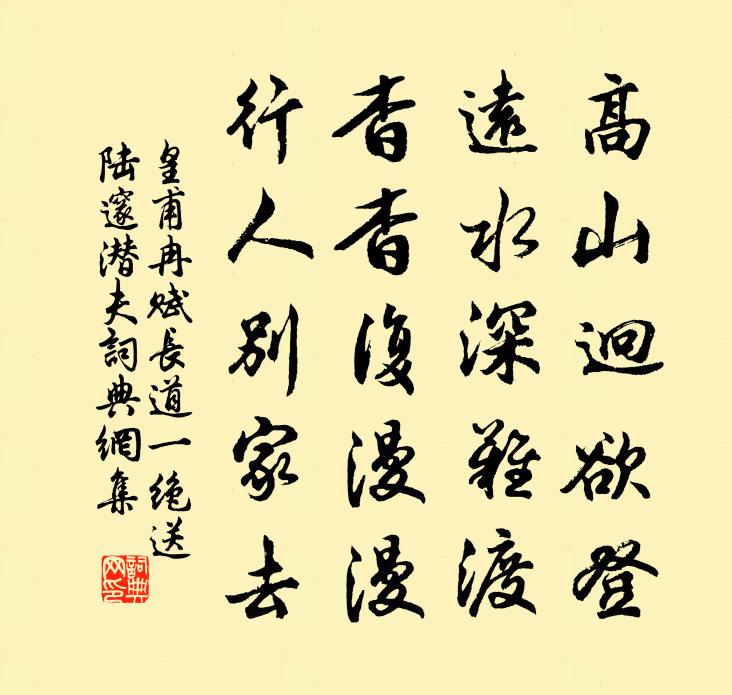 高山迥欲登
遠水深難渡
杳杳復漫漫
行人別家去
皇甫冉賦長道一絶送
陸邃潜夫詞典網集
詞典網印